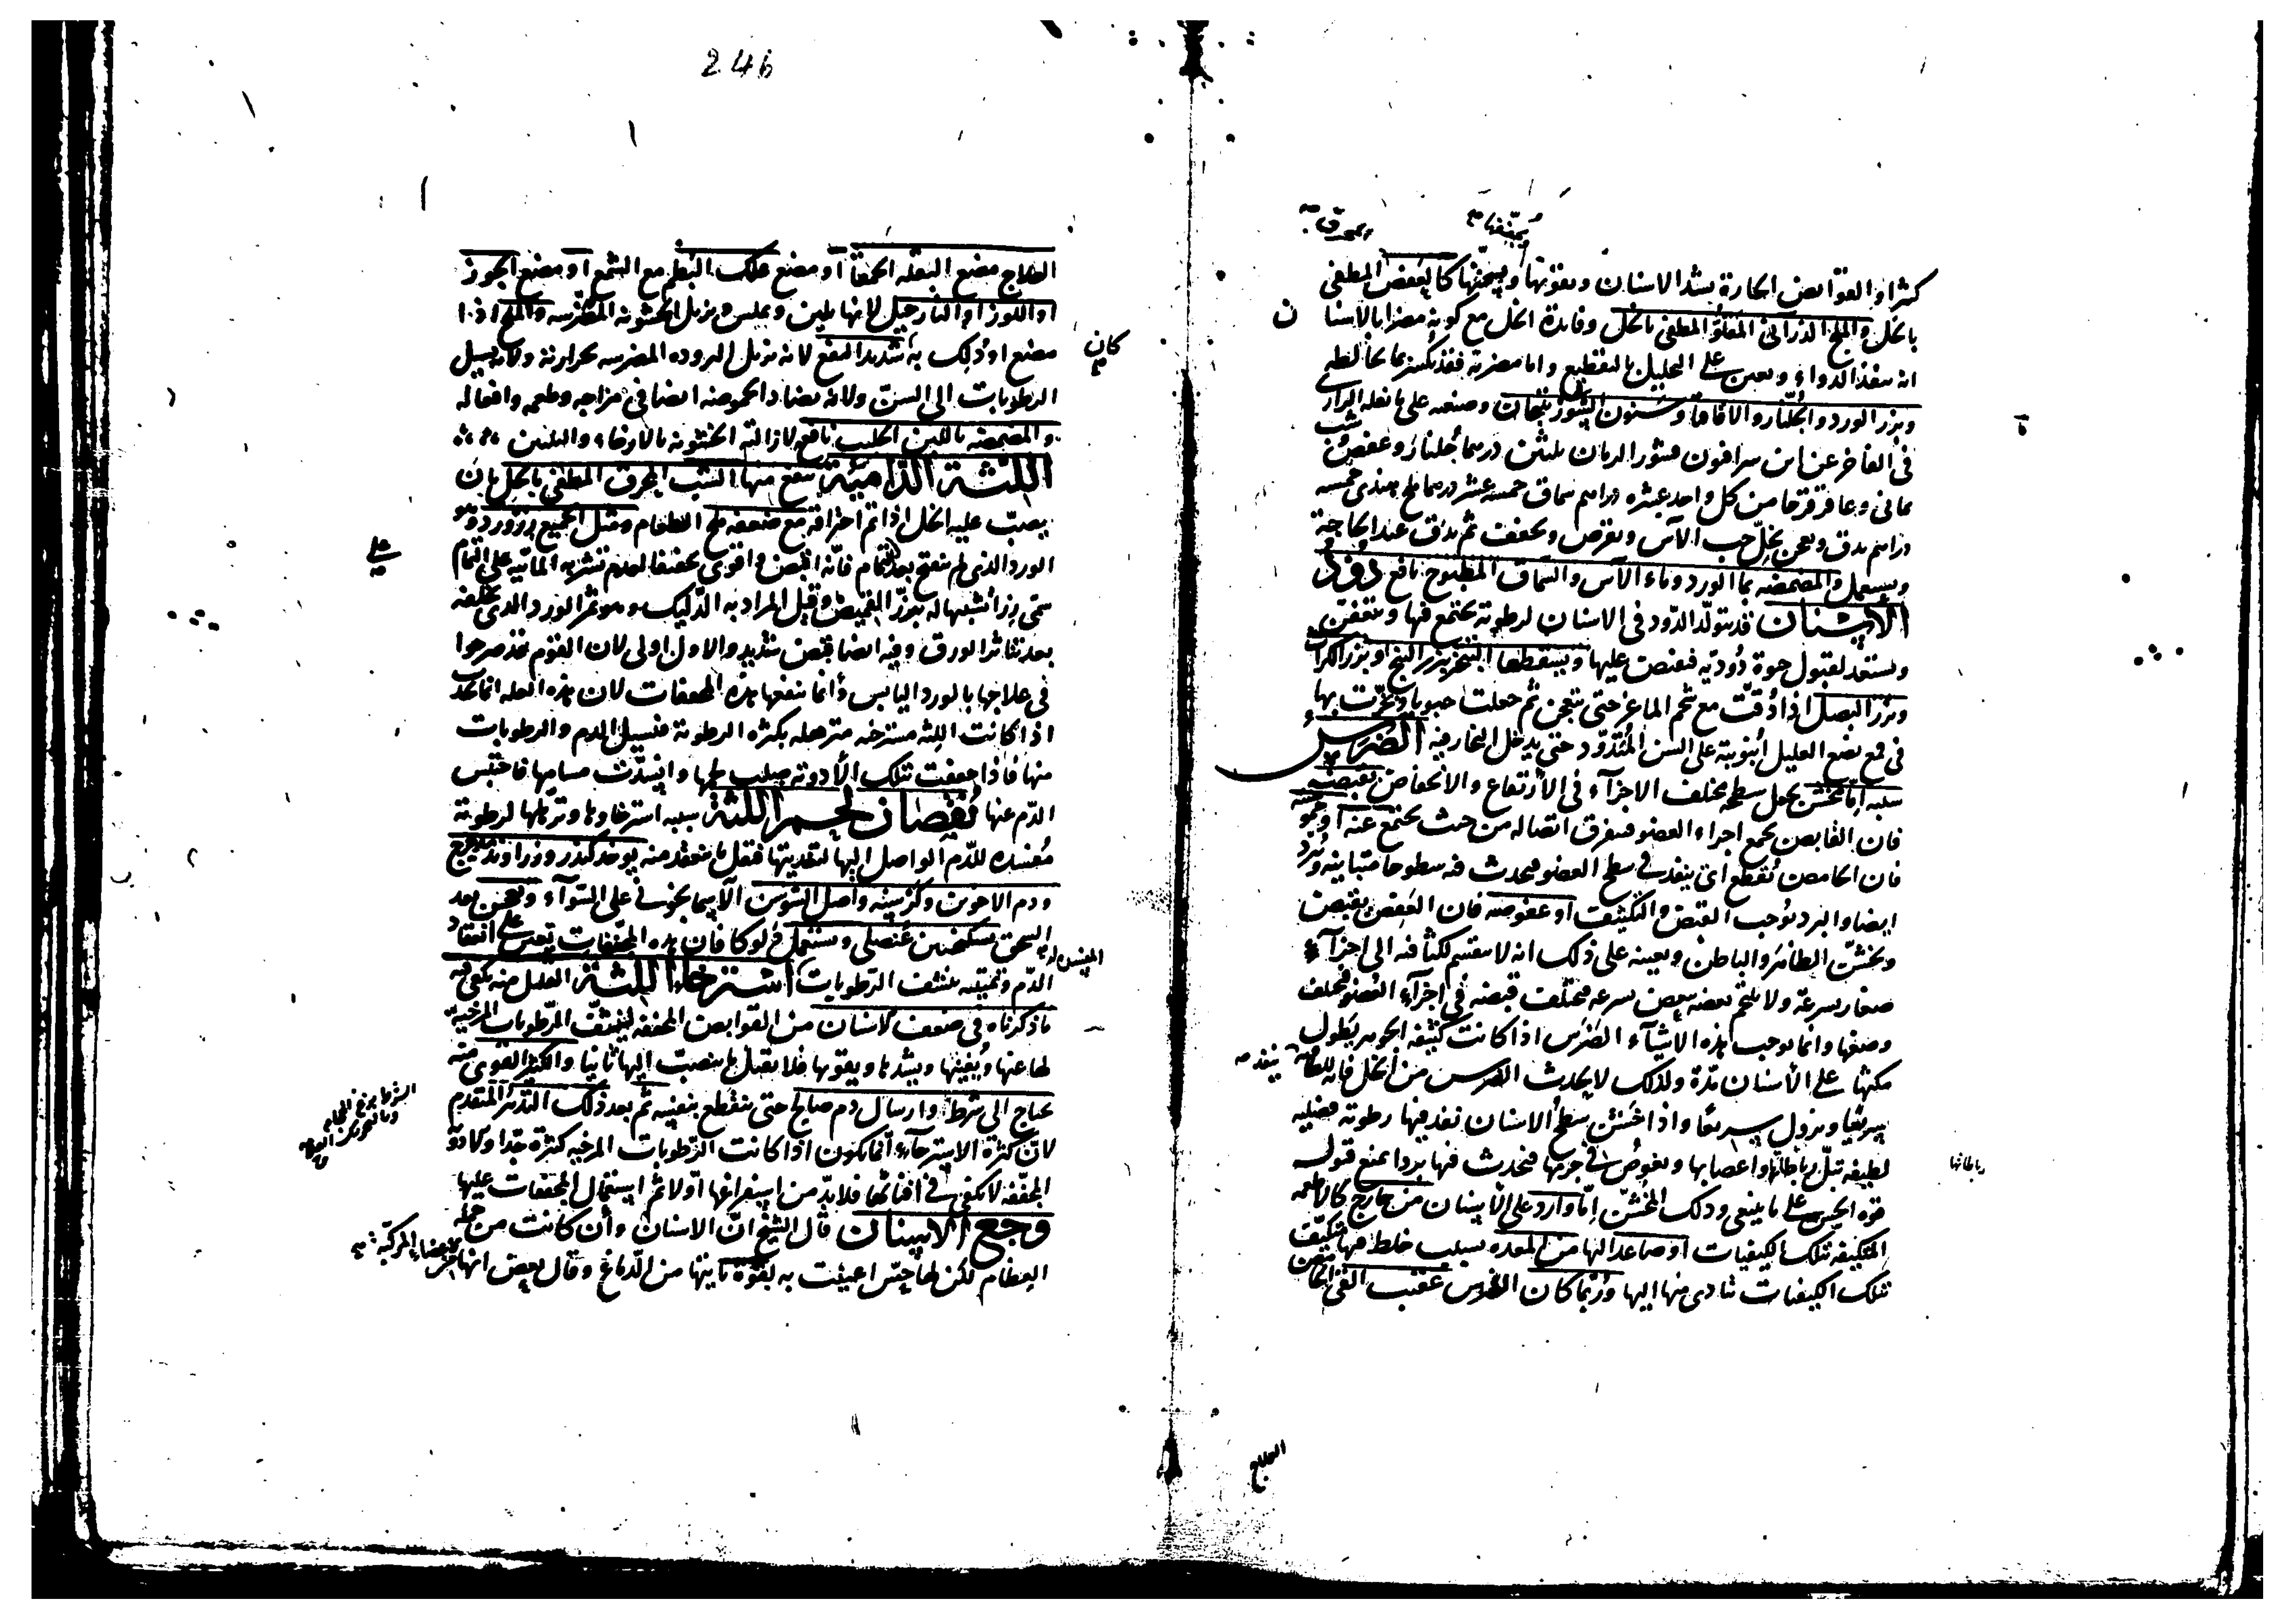 246
كثيرا والقوابض الحارة يشد الاسنان ويقويها ويسخنها كالعفص المطفى
بالخل والملح الدراني المقلو المطفى بالخل وفايدة الخل مع كونه مضرا بالاسنان
انه ينفذ الدواء ويعين على التحليل بالتقطيع واما مضرته فقد تكسر بما يخالطه
وبزر الورد والجلنار والاقاقيا وسنون وصنعه على ما نقله الرازي
في الفاخر عن ابن سرافيون قشور الرمان ثلثين درهما جلنار وعفص وشب
يماني وعاقرقرحا من كل واحد عشرة دراهم سماق خمسة عشر درهما ملح هندي خمسة
دراهم يدق ويعجن بخل حب الآس ويقرص ويجفف ثم يدق عند الحاجة
ويستعمل والمضمضه بماء الورد وماء الآس والسماق المطبوخ نافع دود
الاسنان قد يتولد الدود في الاسنان لرطوبة تجتمع فيها ويتعفن
ويستعد لقبول حيوة دودية فيفيض عليها ويسقطها التبخير ببزر البنج او بزر الكراث
وبزر البصل اذا دقت مع شحم الماعز حتى يتعجن ثم جعلت حبوبا وبخرت بها
في قمع يضع العليل انبوبته على السن المتدود حتى يدخل البخار فيه الضرس
سببه اما مخشن يجعل سطحه مختلف الاجزاء في الارتفاع والانخفاض بقبضه
فان القابض يجمع اجزاء العضو فيفرق اتصاله من حيث يجتمع عنه او حموضته
فان الحامض يقطع اي ينفذ في سطح العضو فيحدث فيه سطوحا متباينه ويبرد
ايضا والبرد يوجب القبض والتكثيف او عفوصه فان العفص يقبض
ويخشن الظاهر والباطن ويعينه على ذلك انه لا ينقسم لكثافته الى اجزاء
صغار بسرعة ولا يلتحم بعضه ببعض بسرعه فيختلف قبضه في اجزاء العضو فيختلف
وضعها وانما يوجب هذه الاشياء الضرس اذا كانت كثيفه الجوهر يطول
مكثها على الاسنان مدة ولذلك لا يحدث الضرس من الخل فانه للطافته ينفذ
سريعا ويزول سريعا واذا خشن سطح الاسنان نفذ فيها رطوبة فضليه
لطيفه تبل رباطاتها واعصابها ويغوص في جرمها فيحدث فيها بردا يمنع قبول
قوة الحس على ما ينبغي وذلك المخشن اما وارد على الاسنان من خارج كالاطعمه
المتكيفه بتلك الكيفيات او صاعد اليها من المعده بسبب خلط فيها متكيف
بتلك الكيفيات تتادى منها اليها وربما كان الضرس عقيب القئ الحامض
رباطاتها
ينفذ
العلاج
العلاج مضغ البقله الحمقا او مضغ علك البطم مع الشمع او مضغ الجوز
او اللوز او النارجيل لانها يلين ويملس ويزيل الخشونه المضرسه والملح اذا
مضغ او دلك به شديد النفع لانه يزيل البروده المضرسه بحرارته ولانه يسيل
الرطوبات الى السن ولانه يضاد الحموضه ايضا في مزاجه وطعمه وافعاله
والمضمضه باللبن الحليب نافع لازالته الخشونه بالارخاء والتليين
اللثة الدامية ينفع منها الشب المحرق المطفى بالخل بان
يصب عليه الخل اذا تم احتراقه مع ضعفه ملح الطعام ومثل الجميع زر ورد وهو
الورد الذي لم ينفتح بعد بالتمام فانه اقبض واقوى تجفيفا لعدم تشربه المائيه على التمام
سمى زرا تشبيها له بزر القميص وقيل المراد به الدليك وهو ثمر الورد الذي يخلفه
بعد تناثر الورق وفيه ايضا قبض شديد والاول اولى لان القوم قد صرحوا
في علاجها بالورد اليابس وانما ينفعها هذه المجففات لان هذه العله انما تحدث
اذا كانت اللثه مسترخيه مترهله بكثرة الرطوبة فيسيل الدم والرطوبات
منها فاذا جففت تلك الادويه صلب لحمها وانسدت مسامها فاحتبس
الدم عنها نقصان لحم اللثة سببه استرخاؤها وترهلها لرطوبة
مفسده للدم الواصل اليها لتغذيتها فيقل ما ينعقد منه يوخذ كندر وزراوند مدحرج
ودم الاخوين وكرسنه واصل السوسن الآسمانجوني على السواء ويعجن بعد
السحق بسكنجبين عنصلي ويستعمل دلوكا فان هذه المجففات تعين على انعقاد
الدم وتمتينه بنشف الرطوبات استرخاء اللثة القليل منه يكفي فيه
ما ذكرناه في ضعف الاسنان من القوابض المجففه لينشف الرطوبات المرخيه
لها عنها ويفنيها ويشدها ويقويها فلا يقبل ما ينصب اليها ثانيا والكثير القوي منه
يحتاج الى شرط وارسال دم صالح حتى ينقطع بنفسه ثم بعد ذلك التدبير المتقدم
لان كثرة الاسترخاء انما يكون اذا كانت الرطوبات المرخيه كثيرة جدا والادوية
المجففه لا يكفي في افنائها فلا بد من استفراغها اولا ثم استعمال المجففات عليها
وجع الاسنان قال الشيخ ان الاسنان وان كانت من جملة
العظام لكن لها حس اعينت به بقوة تاتيها من الدماغ وقال بعض انها من الاعضاء المركبة
كان